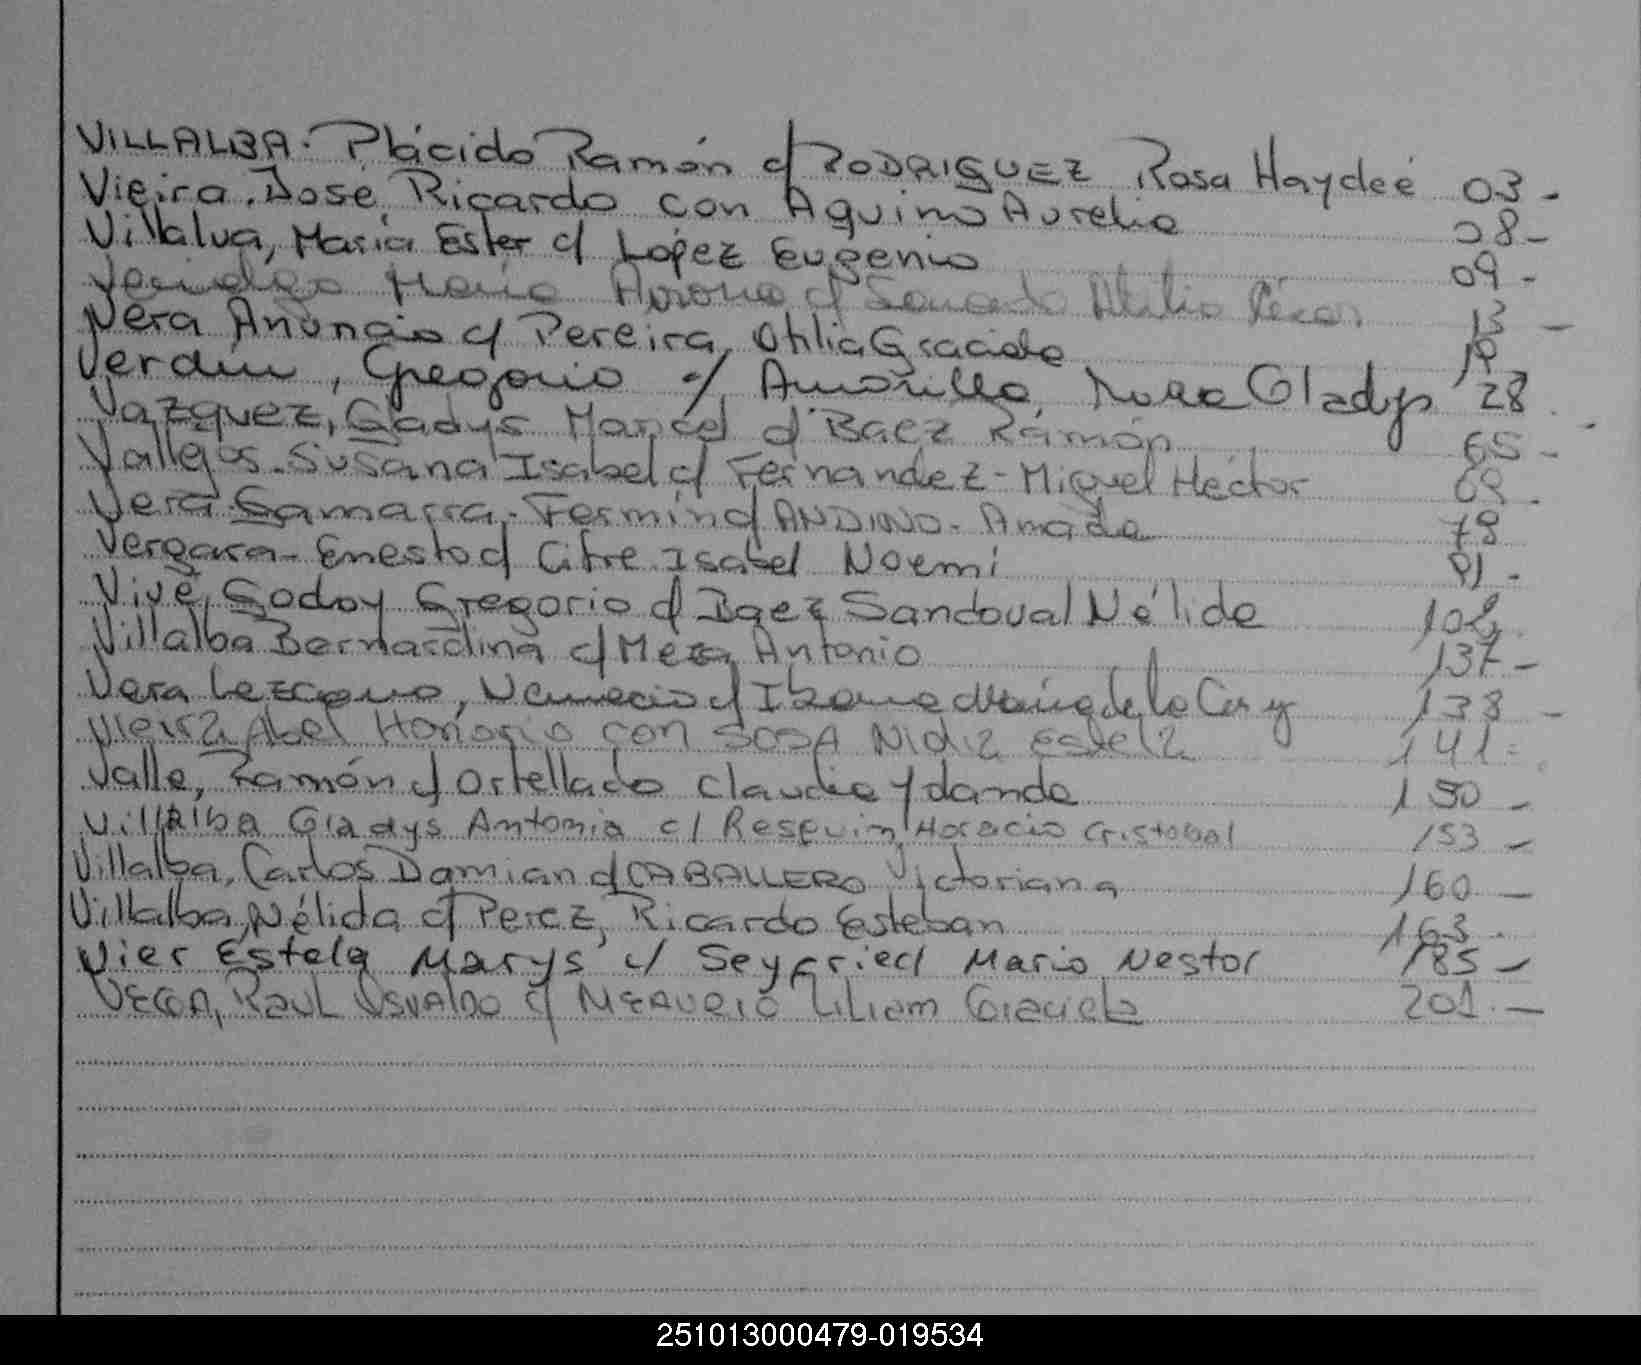 VILLALBA. Plácido Ramón c/ RODRIGUEZ Rosa Haydeé 03-
Vieira. José Ricardo con Aquino Aurelio 08-
Villalva, María Ester c/ López Eugenio 09-
c/ 13 -
Vera Anuncio c/ Pereira, Otilia Graciela 19
Verdún, Gregorio c/ Amarilla, Nora Gladys 28
Vazquez, Gladys Maricel c/ Baez Ramón 65-
Vallejos. Susana Isabel c/ Fernandez - Miguel Héctor 69.
Vera Gamarra. Fermín c/ ANDINO. Amada 78
Vergara - Enesto c/ Citre Isabel Noemi 91.
Vivé, Godoy Gregorio c/ Baez Sandoval Nélida
Villalba Bernardina c/ Meza, Antonio 137-
Vera Lezcano, Nemecio c/ 138 -
Vieira Abel Honorio con SOSA Nidia Estela 141-
Valle, Ramón c/ Ortellado Claudia Ydanda 150 -
Villalba Gladys Antonia c/ Resquin, Horacio Cristobal 153 -
Villalba, Carlos Damian c/ CABALLERO Victoriana 160 -
Villalba, Nélida c/ Perez, Ricardo Esteban 163.
Vier Estela Marys c/ Seyfried Mario Nestor 185-
VEGA, Raul Osvaldo c/ Liliam Graciela 201.-
251013000479-019534